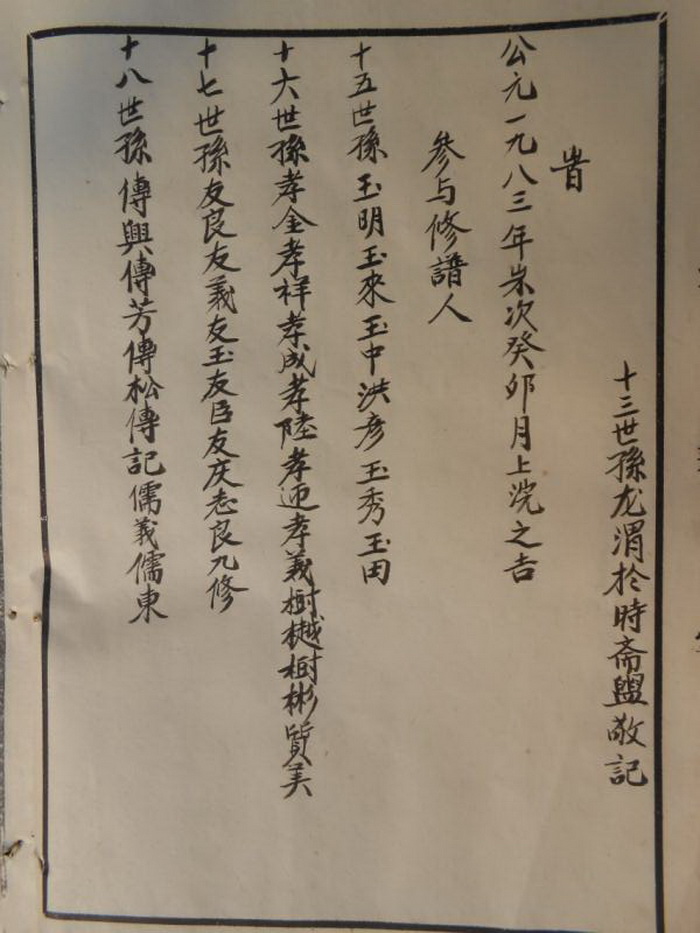 十三世孫龙渭於時斋盥敬記
旹
公元一九八三年岽次癸卯月上浣之吉
参与修譜人
十五世孫玉明玉來玉中洪彦玉秀玉田
十六世孫孝金孝祥孝成孝陸孝迎孝義樹樾樹彬質美
十七世孫友良友義友玉友臣友庆志良九修
十八世孫傳興傳芳傳松傳記儒義儒東